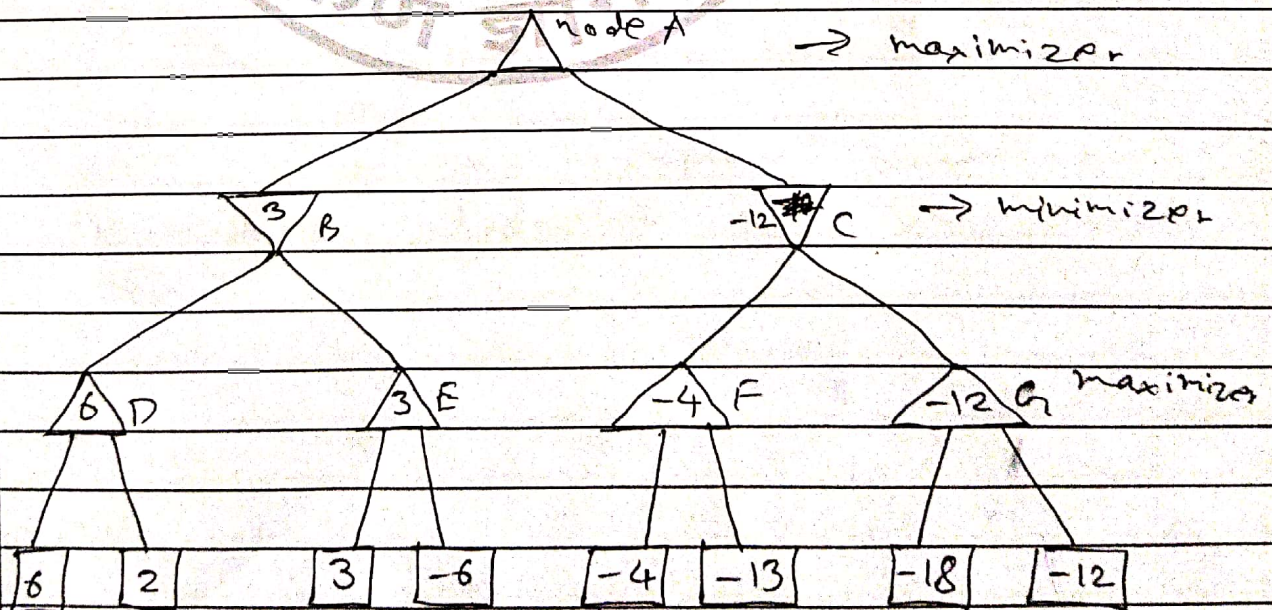 node A → maximizer
3 B -12 C → minimizer
6 D 3 E -4 F -12 G maximizer
6 2 3 -6 -4 -13 -18 -12